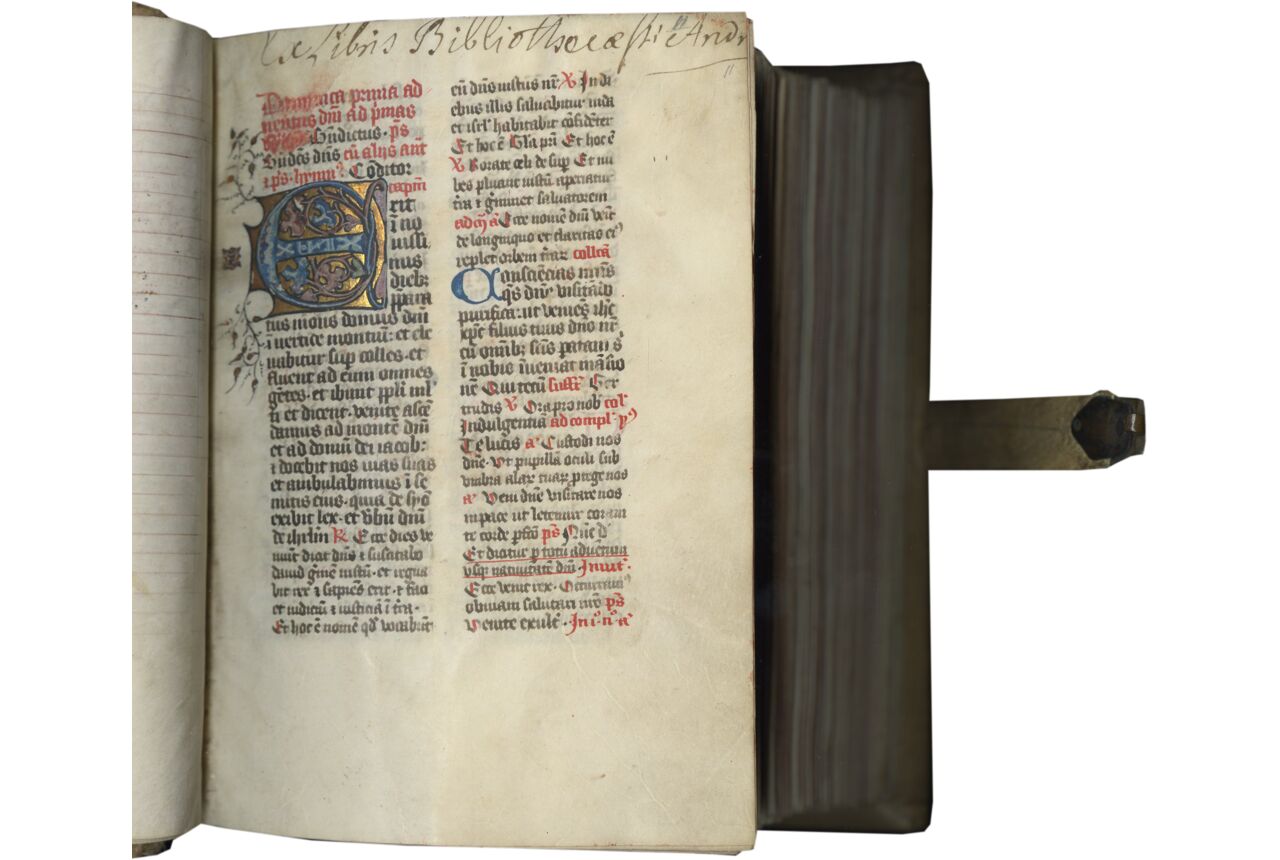 Ex Libris Bibliothecæ sti Andr
11
Dominica prima ad
uentus dñi ad p̃mas
B̃ndictus · p̄s
B̃ndēs dñs cū alijs añt
⁊ p̄s · hymn᷒ · Cōditor
capĩm
Erit
ī no
uissi
mis
dieb᷒
p̃para
tus mons domus dñi
ī uertice montiū: et ele
uabitur sup colles · et
fluent ad eum omnes
gētes · et ibunt pp̃li ml̃
ti et dicent · venite ascē
damus ad montē dñi
et ad domū dei iacob:
⁊ docebit nos uias suas
et ambulabimus ī se
mitis eius · quia de syō
exibit lex · et ṽbū dñi
de ihrl̃m ℟ Ecce dies ve
niūt dicit dñs ⁊ suscitabo
dauid g̃mē iustū · et regna
bit rex ⁊ sapiēs erit · ⁊ faci
et iudiciū ⁊ iusticiā ī t̃ra ·
Et hoc ē nomē qd̃ vocabūt
eū dñs iustus nr̃ ℣ In di
ebus illis saluabitur iuda
et isrl̃ habitabit cōfidēter
Et hoc ē Gl̃a pr̃i Et hoc ē
℣ Rorate celi de sup Et nu
bes pluant iustū aperiatur
t̃ra ⁊ g̃minet saluatorem
ad m̃ a᷒ Ecce nomē dñi veīt
de longinquo et claritas ei᷒
replet orbem t̃raꝝ collcā
Consciēcias nr̃as
q̄s dñe visitādo
purifica: ut veniēs ihc̄
xp̄c filius tuus dño nr̃
cū omīb᷒ sc̄is patam s
ī nobis īueniat māsio
nē Qui tecū suffr̃ Ger
trudis ℣ Ora pro nob̃ col᷒
Indulgentiā ad compl᷒ · y᷒
Te lucis a᷒ Custodi nos
dñe · vt pupillā oculi sub
vmbra alaꝝ tuaꝝ ꝓtege nos
a᷒ Veni dñe visitare nos
in pace ut letemur coram
te corde p̃fcō p̄s Nūc d̃
Et dicatur p totū aduentum
vsq nativitatē dñi · Inuit᷒ ·
Ecce venit rex · Occuram᷒
obuiam saluatori nr̃o p̄s
Venite exult᷒ · In i᷒ · n᷒ a᷒